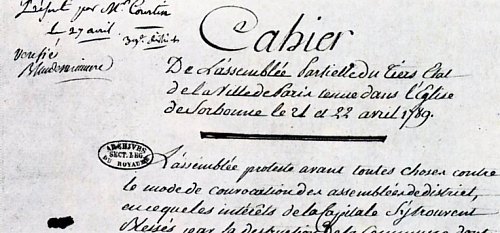 Déposé par Mr Courtin
le 27 avril.
vérifié
Cahier
De L'assemblée Partielle du Tiers Etat
de la Ville de Paris tenue dans l'Eglise
de Sorbonne le 21 et 22 avril 1789.
ARCHIVES
SECT. LEG.
DU ROYAUME
L'assemblée proteste avant toutes choses contre
le mode de convocation des assemblées de district,
en ce que les intérêts de la Capitale s'y trouvent
Blessés par la destruction de la Commune dont